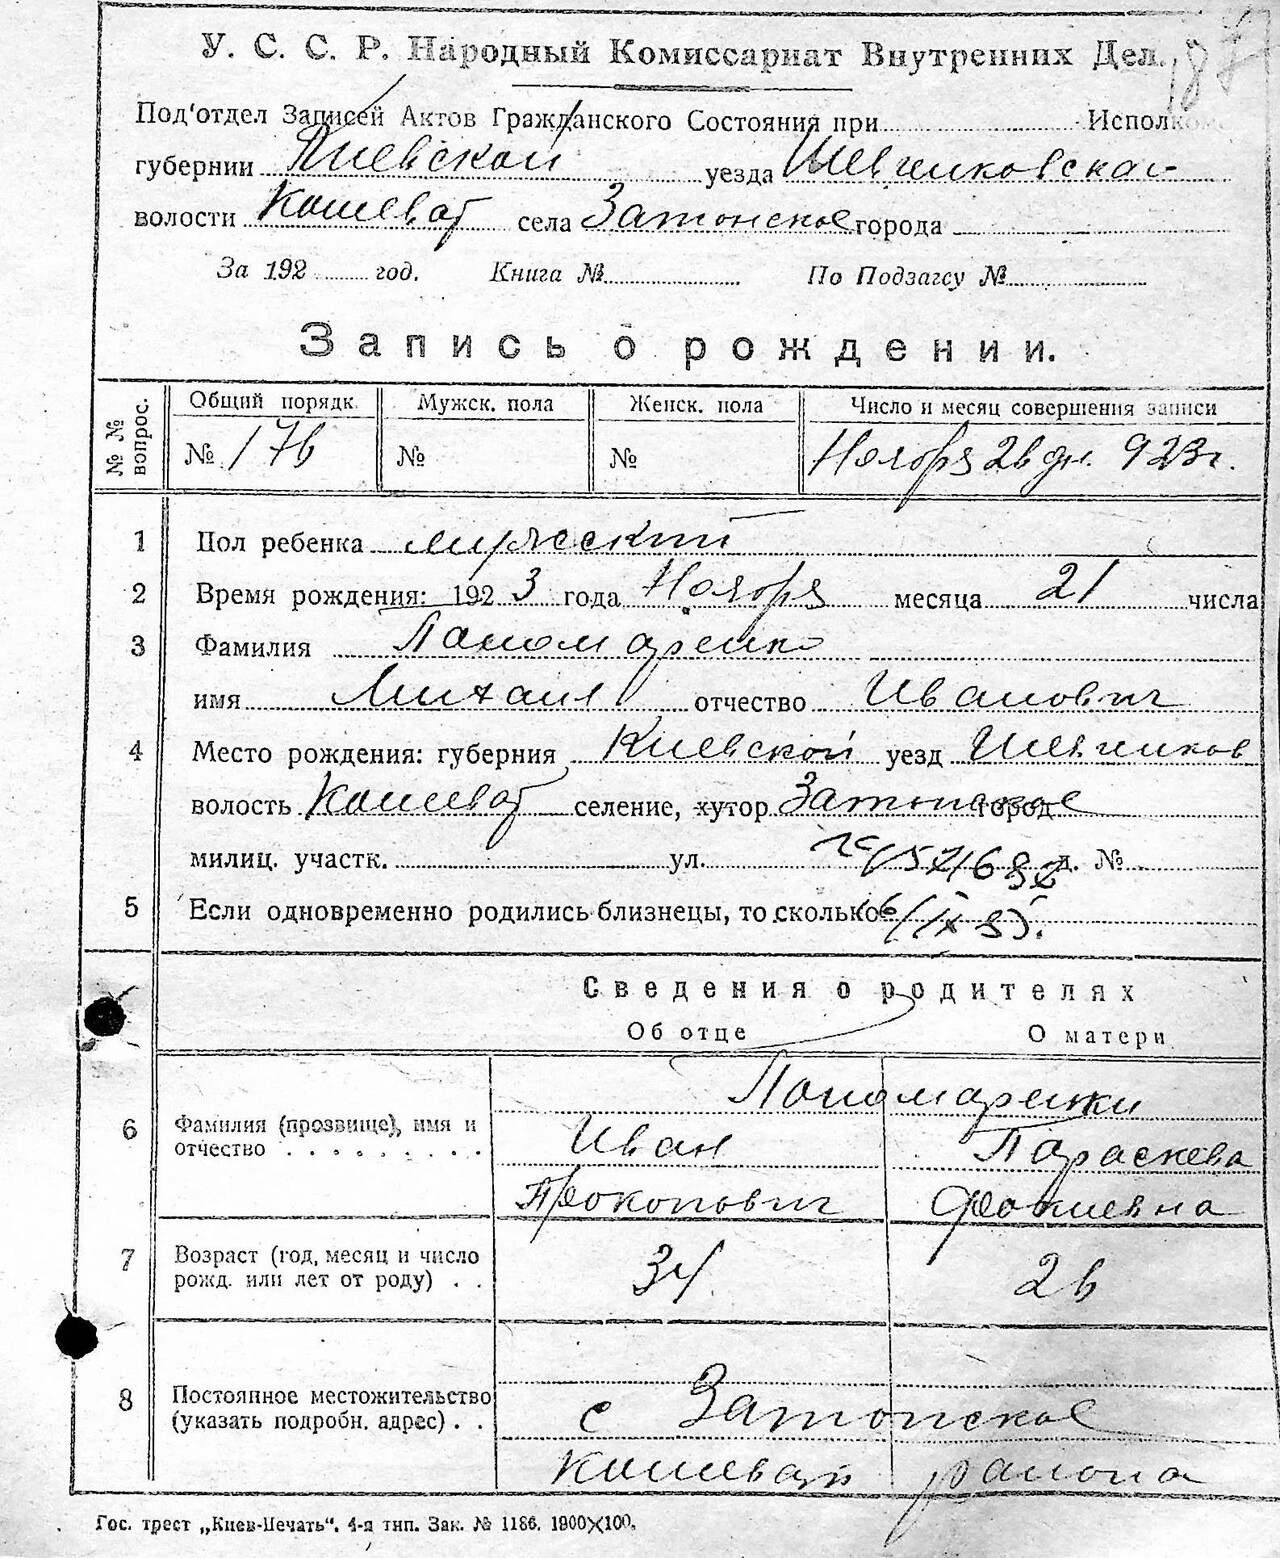 У. С. С. Р. Народный Комиссариат Внутренних Дел.
Под'отдел Записей Актов Гражданского Состояния при Исполком
губернии Киевской уезда Шевченковской
волости Кошеват села Затонское города
За 192 год. Книга № По Подзагсу №
Запись о рождении.
№ № вопрос. Общий порядк. Мужск. пола Женск. пола Число и месяц совершения записи
№ 176 № № Ноября 26 дн. 923 г.
1 Пол ребенка мужеский
2 Время рождения: 1923 года Ноября месяца 21 числа
3 Фамилия Паномаренко
имя Михаил отчество Иванович
4 Место рождения: губерния Киевской уезд Шевченков
волость Кошеват селение, хутор Затонское город
милиц. участк. ул. д. №
5 Если одновременно родились близнецы, то сколько
Сведения о родителях
Об отце О матери
Пономаренки
6 Фамилия (прозвище), имя и отчество Иван Параскева
Прокопович Фокиевна
7 Возраст (год, месяц и число рожд. или лет от роду) 34 26
8 Постоянное местожительство (указать подробн. адрес) с Затонское
Кошеват района
Гос. трест „Киев-Печать“. 4-я тип. Зак. № 1186. 1900×100.